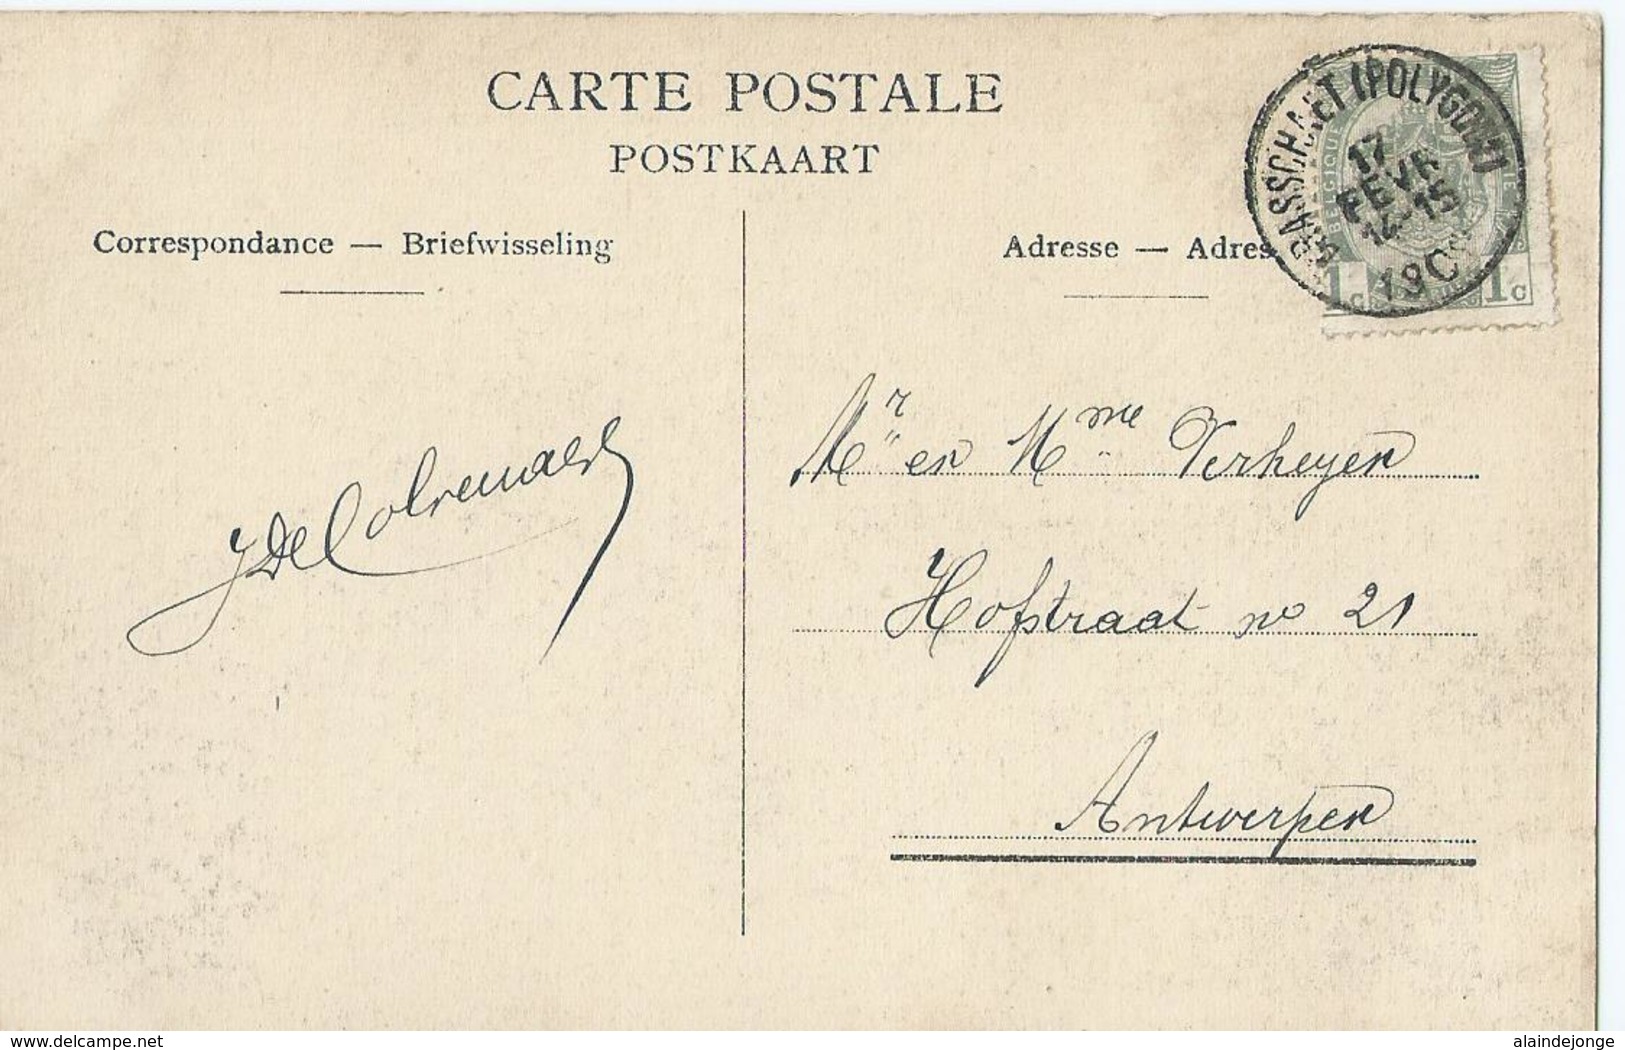 CARTE POSTALE
POSTKAART
Correspondance — Briefwisseling
Adresse — Adres
BRASSCHAET (POLYGONE)
17
FEVR
14-15
190
BELGIQUE
1c 1c
Mr en Mme Verheyen
Hofstraat no 21
Antwerpen
J De
www.delcampe.net
alaindejonge